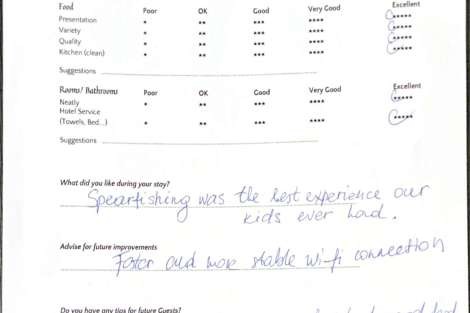 Food Poor OK Good Very Good Excellent
Presentation * ** *** **** *****
Variety * ** *** **** *****
Quality * ** *** **** *****
Kitchen (clean) * ** *** **** *****
Suggestions
Rooms/ Bathrooms Poor OK Good Very Good Excellent
Neatly * ** *** **** *****
Hotel Service
(Towels, Bed...) * ** *** **** *****
Suggestions
What did you like during your stay?
Spearfishing was the best experience our
kids ever had.
Advise for future improvements
Faster and more stable wi-fi connection
Do you have any tips for future Guests?